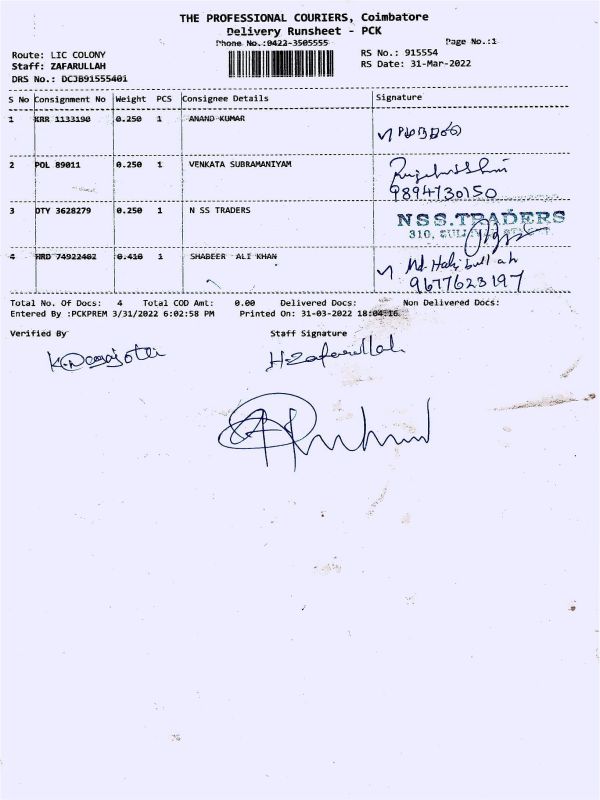 THE PROFESSIONAL COURIERS, Coimbatore
Delivery Runsheet - PCK
Phone No.:0422-3505555 Page No.:1
Route: LIC COLONY RS No.: 915554
Staff: ZAFARULLAH RS Date: 31-Mar-2022
DRS No.: DCJB91555401
S No Consignment No Weight PCS Consignee Details Signature
1 KRR 1133190 0.250 1 ANAND KUMAR
2 POL 89011 0.250 1 VENKATA SUBRAMANIYAM
9894730150
3 DTY 3628279 0.250 1 N SS TRADERS NSS.TRADERS
310,
4 RRD 74922402 0.410 1 SHABEER ALI KHAN Md. Habibullah
9677623197
Total No. Of Docs: 4 Total COD Amt: 0.00 Delivered Docs: Non Delivered Docs:
Entered By :PCKPREM 3/31/2022 6:02:58 PM Printed On: 31-03-2022 18:04:16
Verified By Staff Signature
H. Zafarullah